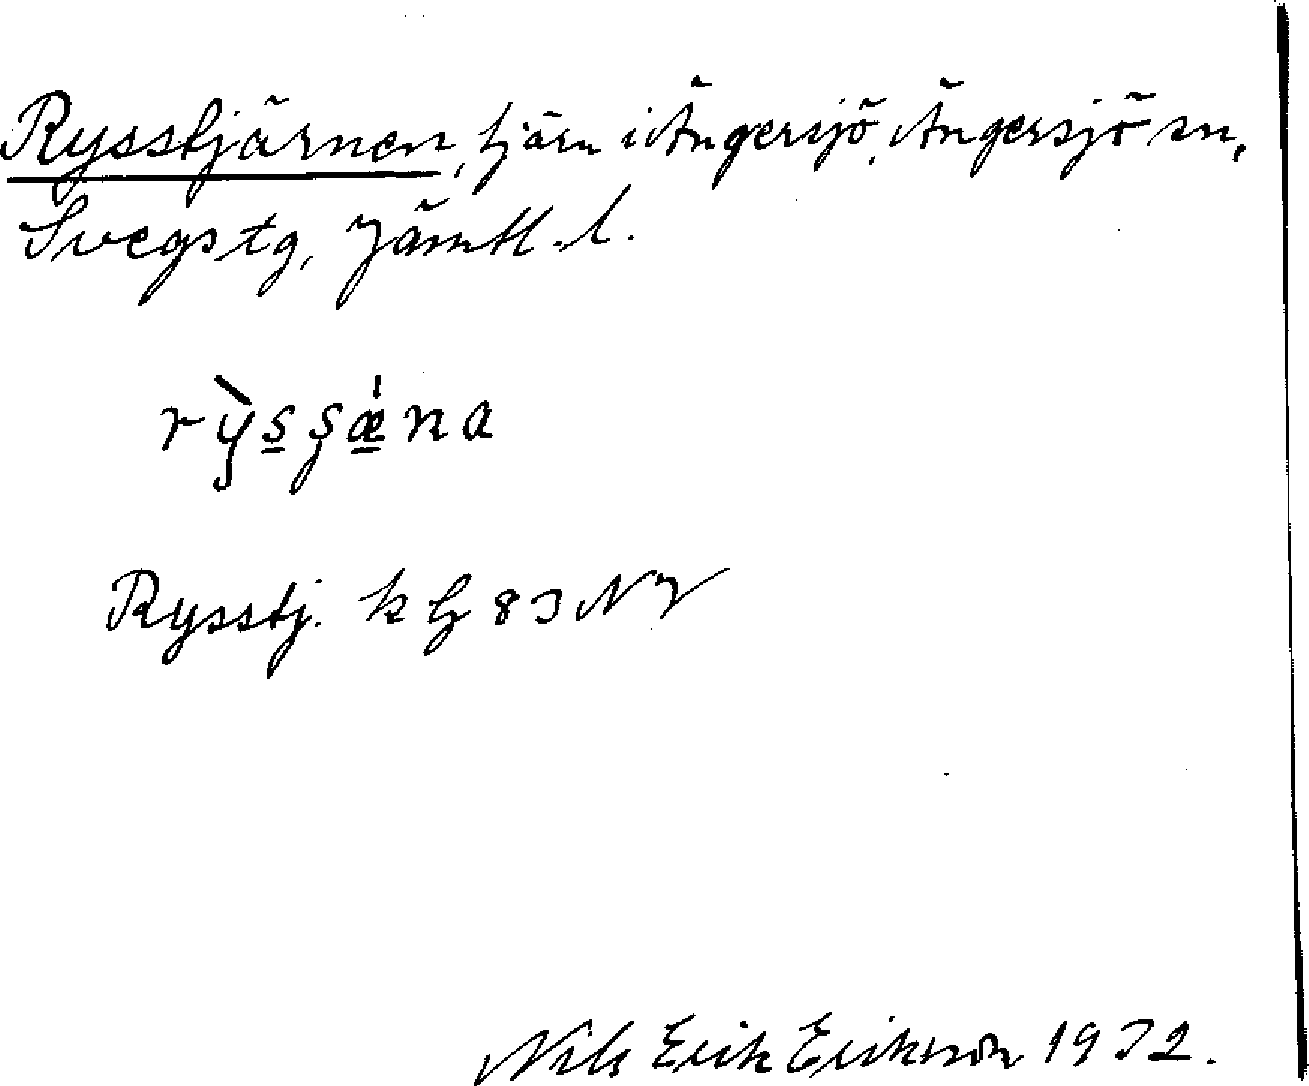 Rysstjärnen, tjärn i Ängersjö, Ängersjö sn,
Svegs tg, Jämtl. l.
rỳsʂæ̍na
Rysstj. k bl 83 NV
Nils Erik Erikson 1932.